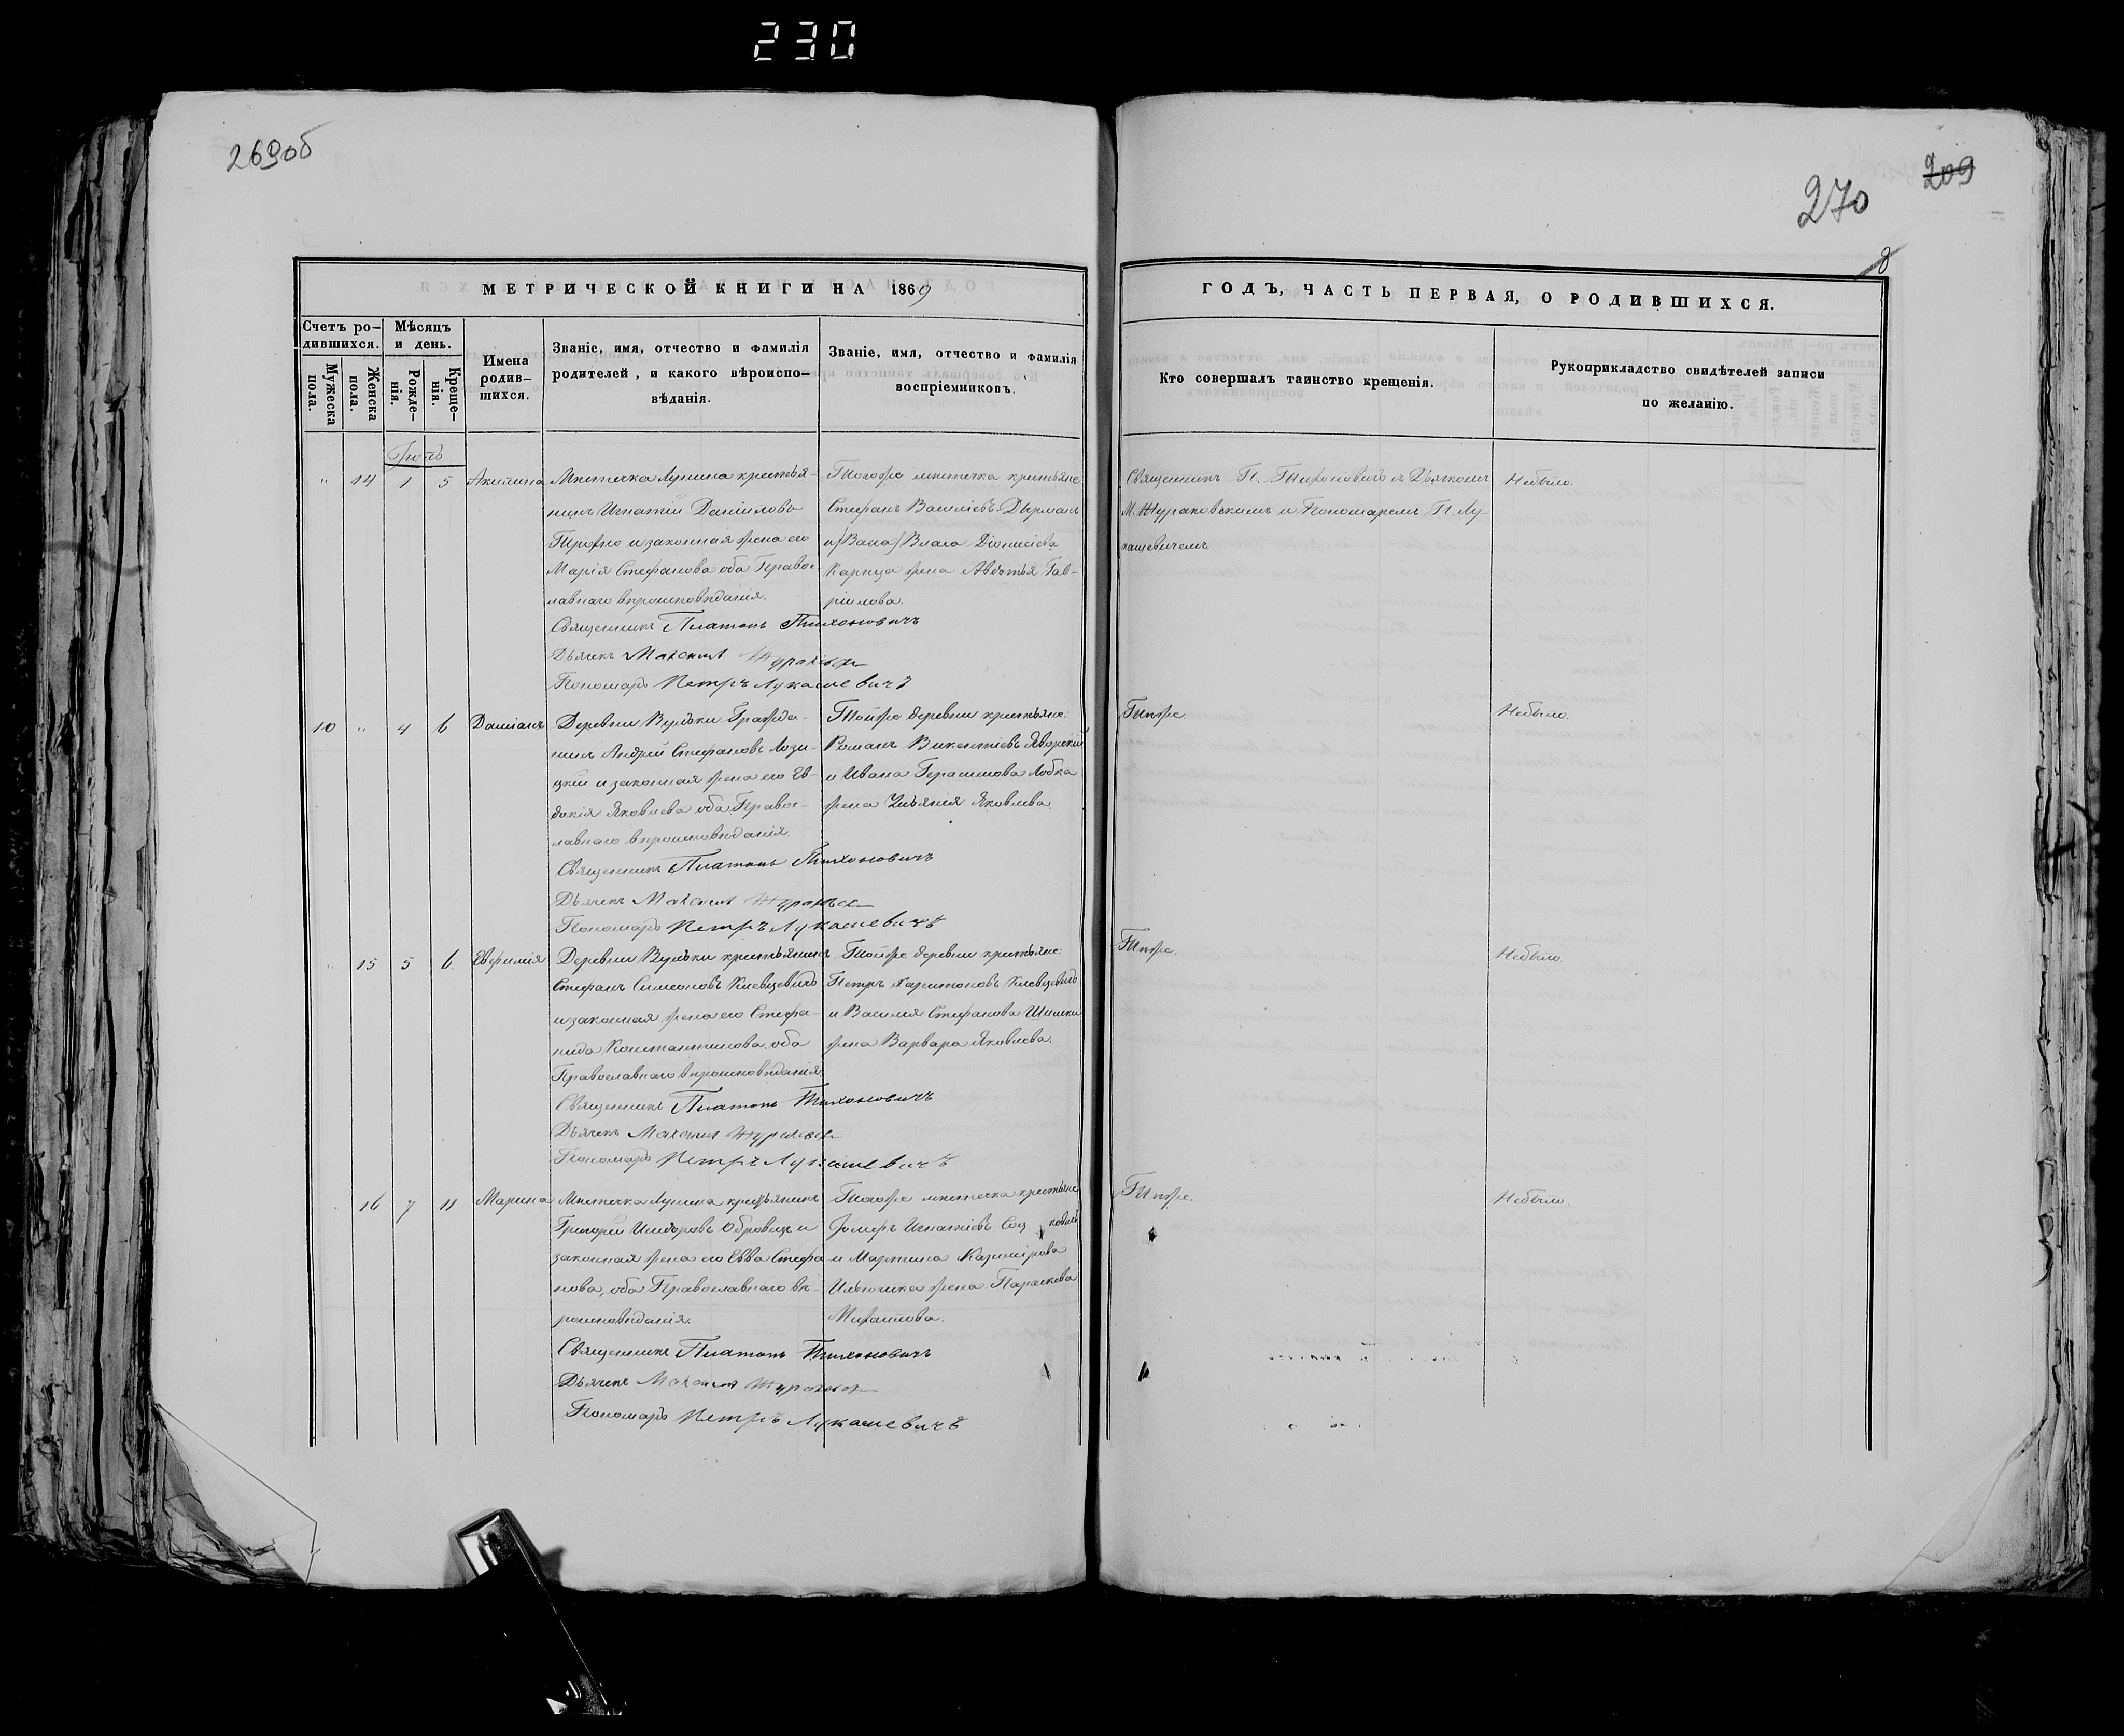 230
269об
270
209
8
МЕТРИЧЕСКОЙ КНИГИ НА 1869
ГОДЪ, ЧАСТЬ ПЕРВАЯ, О РОДИВШИХСЯ.
Счетъ родившихся.
Мужеска пола.
Женска пола.
Мѣсяцъ и день.
Рожденія.
Крещенія.
Имена родившихся.
Званіе, имя, отчество и фамилія
родителей, и какого вѣроиспо-
вѣданія.
Званіе, имя, отчество и фамилія
воспріемниковъ.
Кто совершалъ таинство крещенія.
Рукоприкладство свидѣтелей записи
по желанію.
" 14 1 5 Акилина
Мѣстечка Лунина крестья-
нинъ Игнатій Даніиловъ
и законная жена его
Марія Стефанова оба Правос-
лавнаго вѣроисповѣданія.
Священникъ Платонъ Тихоновичъ
Дьячекъ
Пономарь Петръ Лукашевичъ
Тогоже мѣстечка крестьяне
Стефанъ Василіевъ Дырманъ
и Власа Діонисіева
жена Авдотья Гав-
ріилова.
Священникъ П. Тихоновичъ съ Дьячкомъ
М. Жураковскимъ и Пономаремъ П. Лу-
кашевичемъ.
Небыло.
10 " 4 6 Даміанъ
Деревни Вульки Гражда-
нинъ Андрей Стефановъ Лози-
цкій и законная жена его Ев-
докія Яковлева оба Правос-
лавнаго вѣроисповѣданія.
Священникъ Платонъ Тихоновичъ
Дьячекъ
Пономарь Петръ Лукашевичъ
Тойже деревни крестьяне:
Романъ Викентіевъ Яворскій
и Ивана Герасимова Лобка
жена Уліянія Яковлева.
Тѣже.
Небыло.
" 15 5 6 Евфимія
Деревни Вульки крестьянинъ
Стефанъ Симеоновъ Клевцевичъ
и законная жена его Стефа-
нида Константинова, оба
Православнаго вѣроисповѣданія.
Священникъ Платонъ Тихоновичъ
Дьячекъ
Пономарь Петръ Лукашевичъ
Тойже деревни крестьяне:
Петръ Харитоновъ Клевцевичъ
и Василія Стефанова Шишки
жена Варвара Яковлева.
Тѣже.
Небыло.
16 7 11 Марина
Мѣстечка Лунина крестьянинъ
Григорій Исидоровъ Обровецъ и
законная жена его Евва Стефа-
нова, оба Православнаго вѣ-
роисповѣданія.
Священникъ Платонъ Тихоновичъ
Дьячекъ
Пономарь Петръ Лукашевичъ
Тогоже мѣстечка крестьяне
Іосифъ Игнатіевъ
и Мартина Казимірова
Ильюшка жена Параскева
Михаилова.
Тѣже.
Небыло.